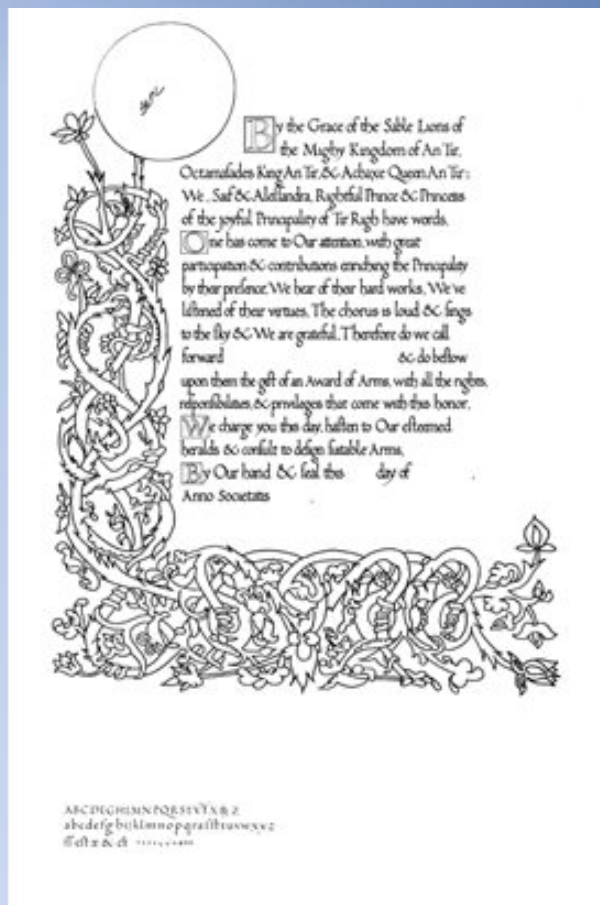 By the Grace of the Sable Lions of
the Mighy Kingdom of An Tir,
King An Tir, & Queen An Tir;
We, Saif & Aleſſandra, Rightful Prince & Princess
of the joyful Principality of Tir Righ have words.
One has come to Our attention, with great
participation & contributions enriching the Principality
by their preſence. We hear of their hard works. We've
liſtened of their virtues. The chorus is loud & ſings
to the ſky & We are grateful. Therefore do we call
forward & do beſtow
upon them the gift of an Award of Arms, with all the rights,
reſponſibilities, & privileges that come with this honor.
We charge you this day, haſten to Our eſteemed
heralds & conſult to deſign ſuitable Arms.
By Our hand & ſeal this day of
Anno Societatis